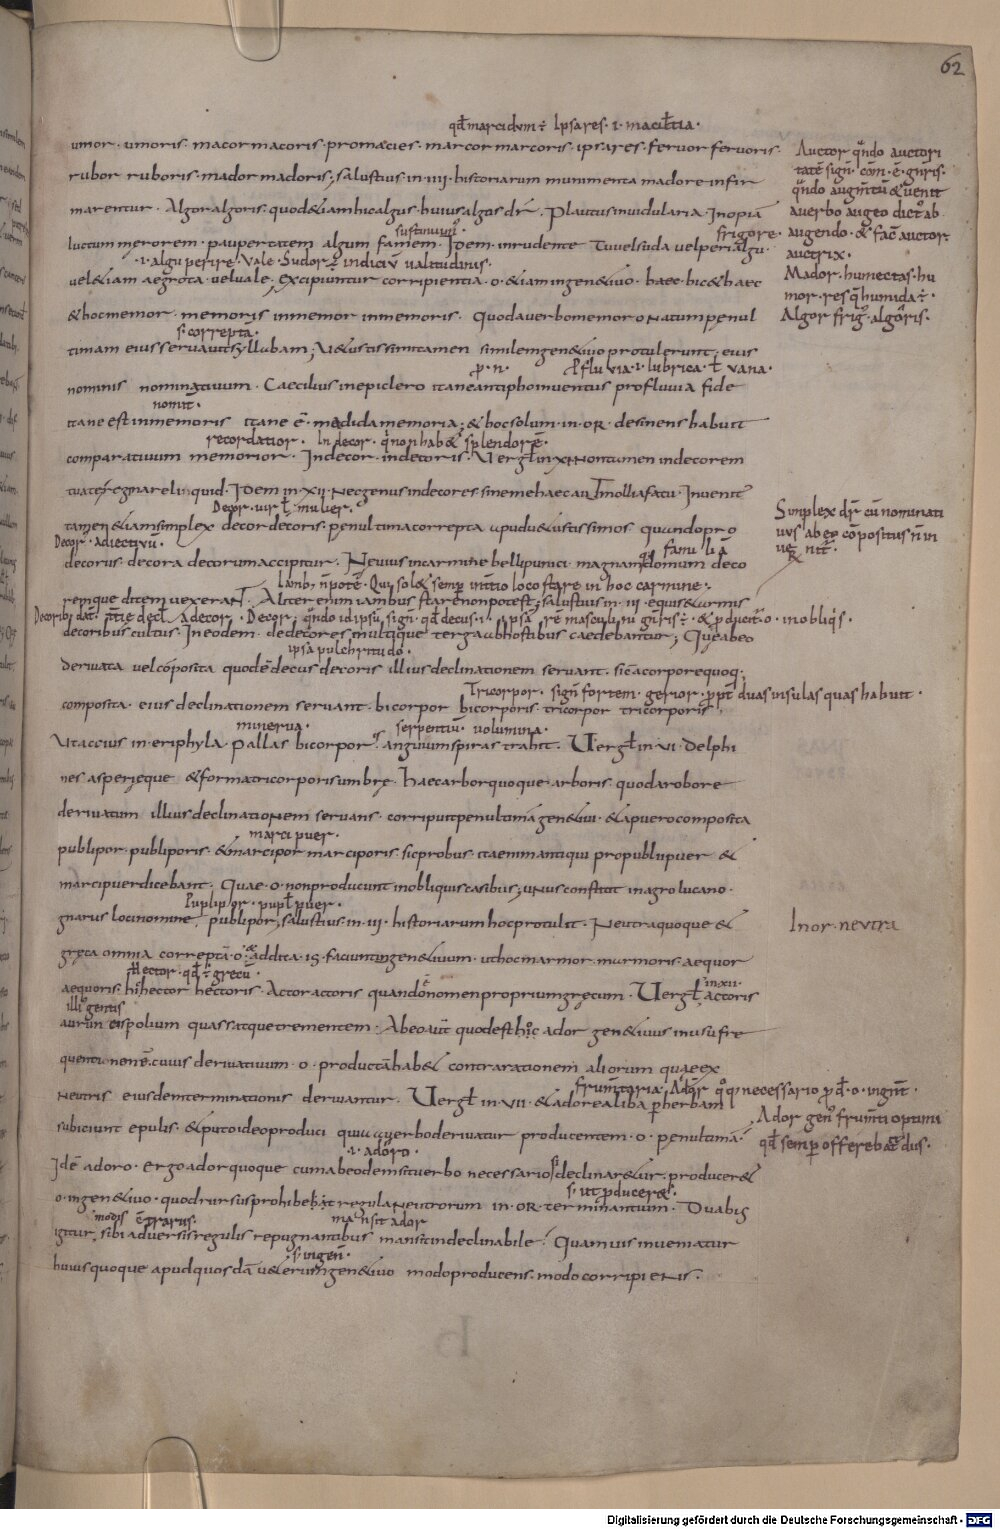 62
qđ marcidum ÷ Ipsa res · i · macił tia ·
umor · umoris · macor macoris · pro macies · marcor marcoris · ipsa res · feruor feruoris ·
rubor ruboris · mador madoris ; salustius · in · IIII · historiarum munimenta madore infir
marentur · Algor algoris · quod &iam hic algus · huius algus dr̄ · Plautus in uidularia · Inopiā
sustinuim᷒
frigore ·
luctum merorem · paupertatem algum famem · Idem · in rudente Tu uel suda uel peri algu ·
· i · algu perire · Vale · Sudor ÷ indiciū ualitudinis ·
uel &iam aegrota · uel uale ; Excipiuntur corripientia · o · &iam in gen&iuo · haec · hic & haec
& hoc memor · memoris inmemor inmemoris · Quod a uerbo memoro natum penul
s · correptā ·
timam eius seruauit syllabam ; U&ustissimi tamen similem gen&iuo protulerunt ; eius
p · n · pflu uia · i · lubrica · ł uana ·
nominis nominatiuum · Caecilius in epiclero itane antipho inuentus profluuia fide
nomit ·
itane est inmemoris itane ē · medida memoria ; & hoc solum · in · or · desinens habuit
recordatior · Indecor · q̄ non hab& splendorē ·
comparatiuum memorior · Indecor · indecoris · Vergł in · XI · Non tamen indecorem
tua te regina reliquid · Idem in · XII · Nec genus indecores · Inuenit᷒
Decor · uir ł mulier ·
tamen &iam simplex decor decoris · penultima correpta apud u&ustissimos quando pro
Decor · adiectiuū ·
decorus · decora decorum accipitur · Neuius in carmine belli punici · magnam domum deco
remque ditem uexerant · Aliter enim iambus stare non potest ; salustius in · III · equis & armis
decoribus cultus · In eodem · dedecores multique terga ab hostibus caedebantur ; Quae a b eo
ipsa pulchritudo ·
deriuata uel cōposita quod ē decus decoris illius declinationem seruant · sic a corpore quoq;
Tricorpor · sign̄ fortem · gerior · ppt̄ duas insulas quas habuit ·
composita · eius declinationem seruant · bicorpor bicorporis · tricorpor tricorporis ·
minerua · serpentiū uolumina ·
Ut accius in · eriphyla · pallas bicorpor anguium spiras trahit · Uergł in · VI · Delphi
nes asperieque & forma tricorporis umbre · Haec arbor quoque arboris · quod a robore
deriuatum illius declinationem seruans · corripuit penultimā gen&iui · & a puero composita
marci puer ·
publipor · publiporis · & marcipor marciporis sic probus · ita enim antiqui pro publii puer &
marci puer dicebant · Quae · o · non producunt in obliquis casibus ; unus constitit in agro lucano ·
Puplipor · pupł puer ·
gnarus loci nomine publipor ; salustius · in · III · historiarum hoc protulit · Neutra quoque &
greca omnia correptā · o · addita · is · faciunt in gen&iuum · ut hoc marmor · marmoris · aequor
Hector · qđ ÷ grecū ·
aequoris · hic hector hectoris · Actor actoris quando ē nomen proprium grecum · Uergł in XII · actoris
aurunci spolium quassatque trementem · Ab eo aut̄ quod est hoc ador gen&iuus in usu fre
quenti non ē · cuius deriuatiuum · o · productā hab& contra rationem aliorum quae ex
neutris eiusdem terminationis deriuantur · Uergł in · VII · & adorea liba p herbam
subiciunt epulis · & puto ideo produci quia a uerbo deriuatur producentem · o · penultimā ·
· i · adoro ·
Idē adoro · ergo ador quoque cum ab eodem sit uerbo necessario si declinar&ur · producer&
s · ut pducer& ·
o · in gen&iuo · quod rursus prohibebat regula neutrorum in · or · terminantium · Duabus
modis ē trariis ·
mansit ador
igitur sibi aduersis regulis repugnantibus mansit indeclinabile · Quamuis inueniatur
s · in gen̄ ·
huius quoque apud quosdā u&erum gen&iuo modo producens · modo corripiens ·
Auctor qn̄do auctori
tatē sign̄ · com̄ · ē · gn̄ris ·
qn̄do augm̄tū & uenit
a uerbo augeo dicto ab
augendo · & fac̄ auctor
auctrix ·
Mador · humectas · hu
mor · res q̄ humida ÷ ·
Algor frig᷒ · algoris ·
Simplex dr̄ cū nominati
uus ab eo cōpositus n̄ in
ueniit̄ ·
In or · neutra
Ador gen᷒ frum̄ti optimi
qđ semp offerebat̄ dis ·
Digitalisierung gefördert durch die Deutsche Forschungsgemeinschaft - DFG